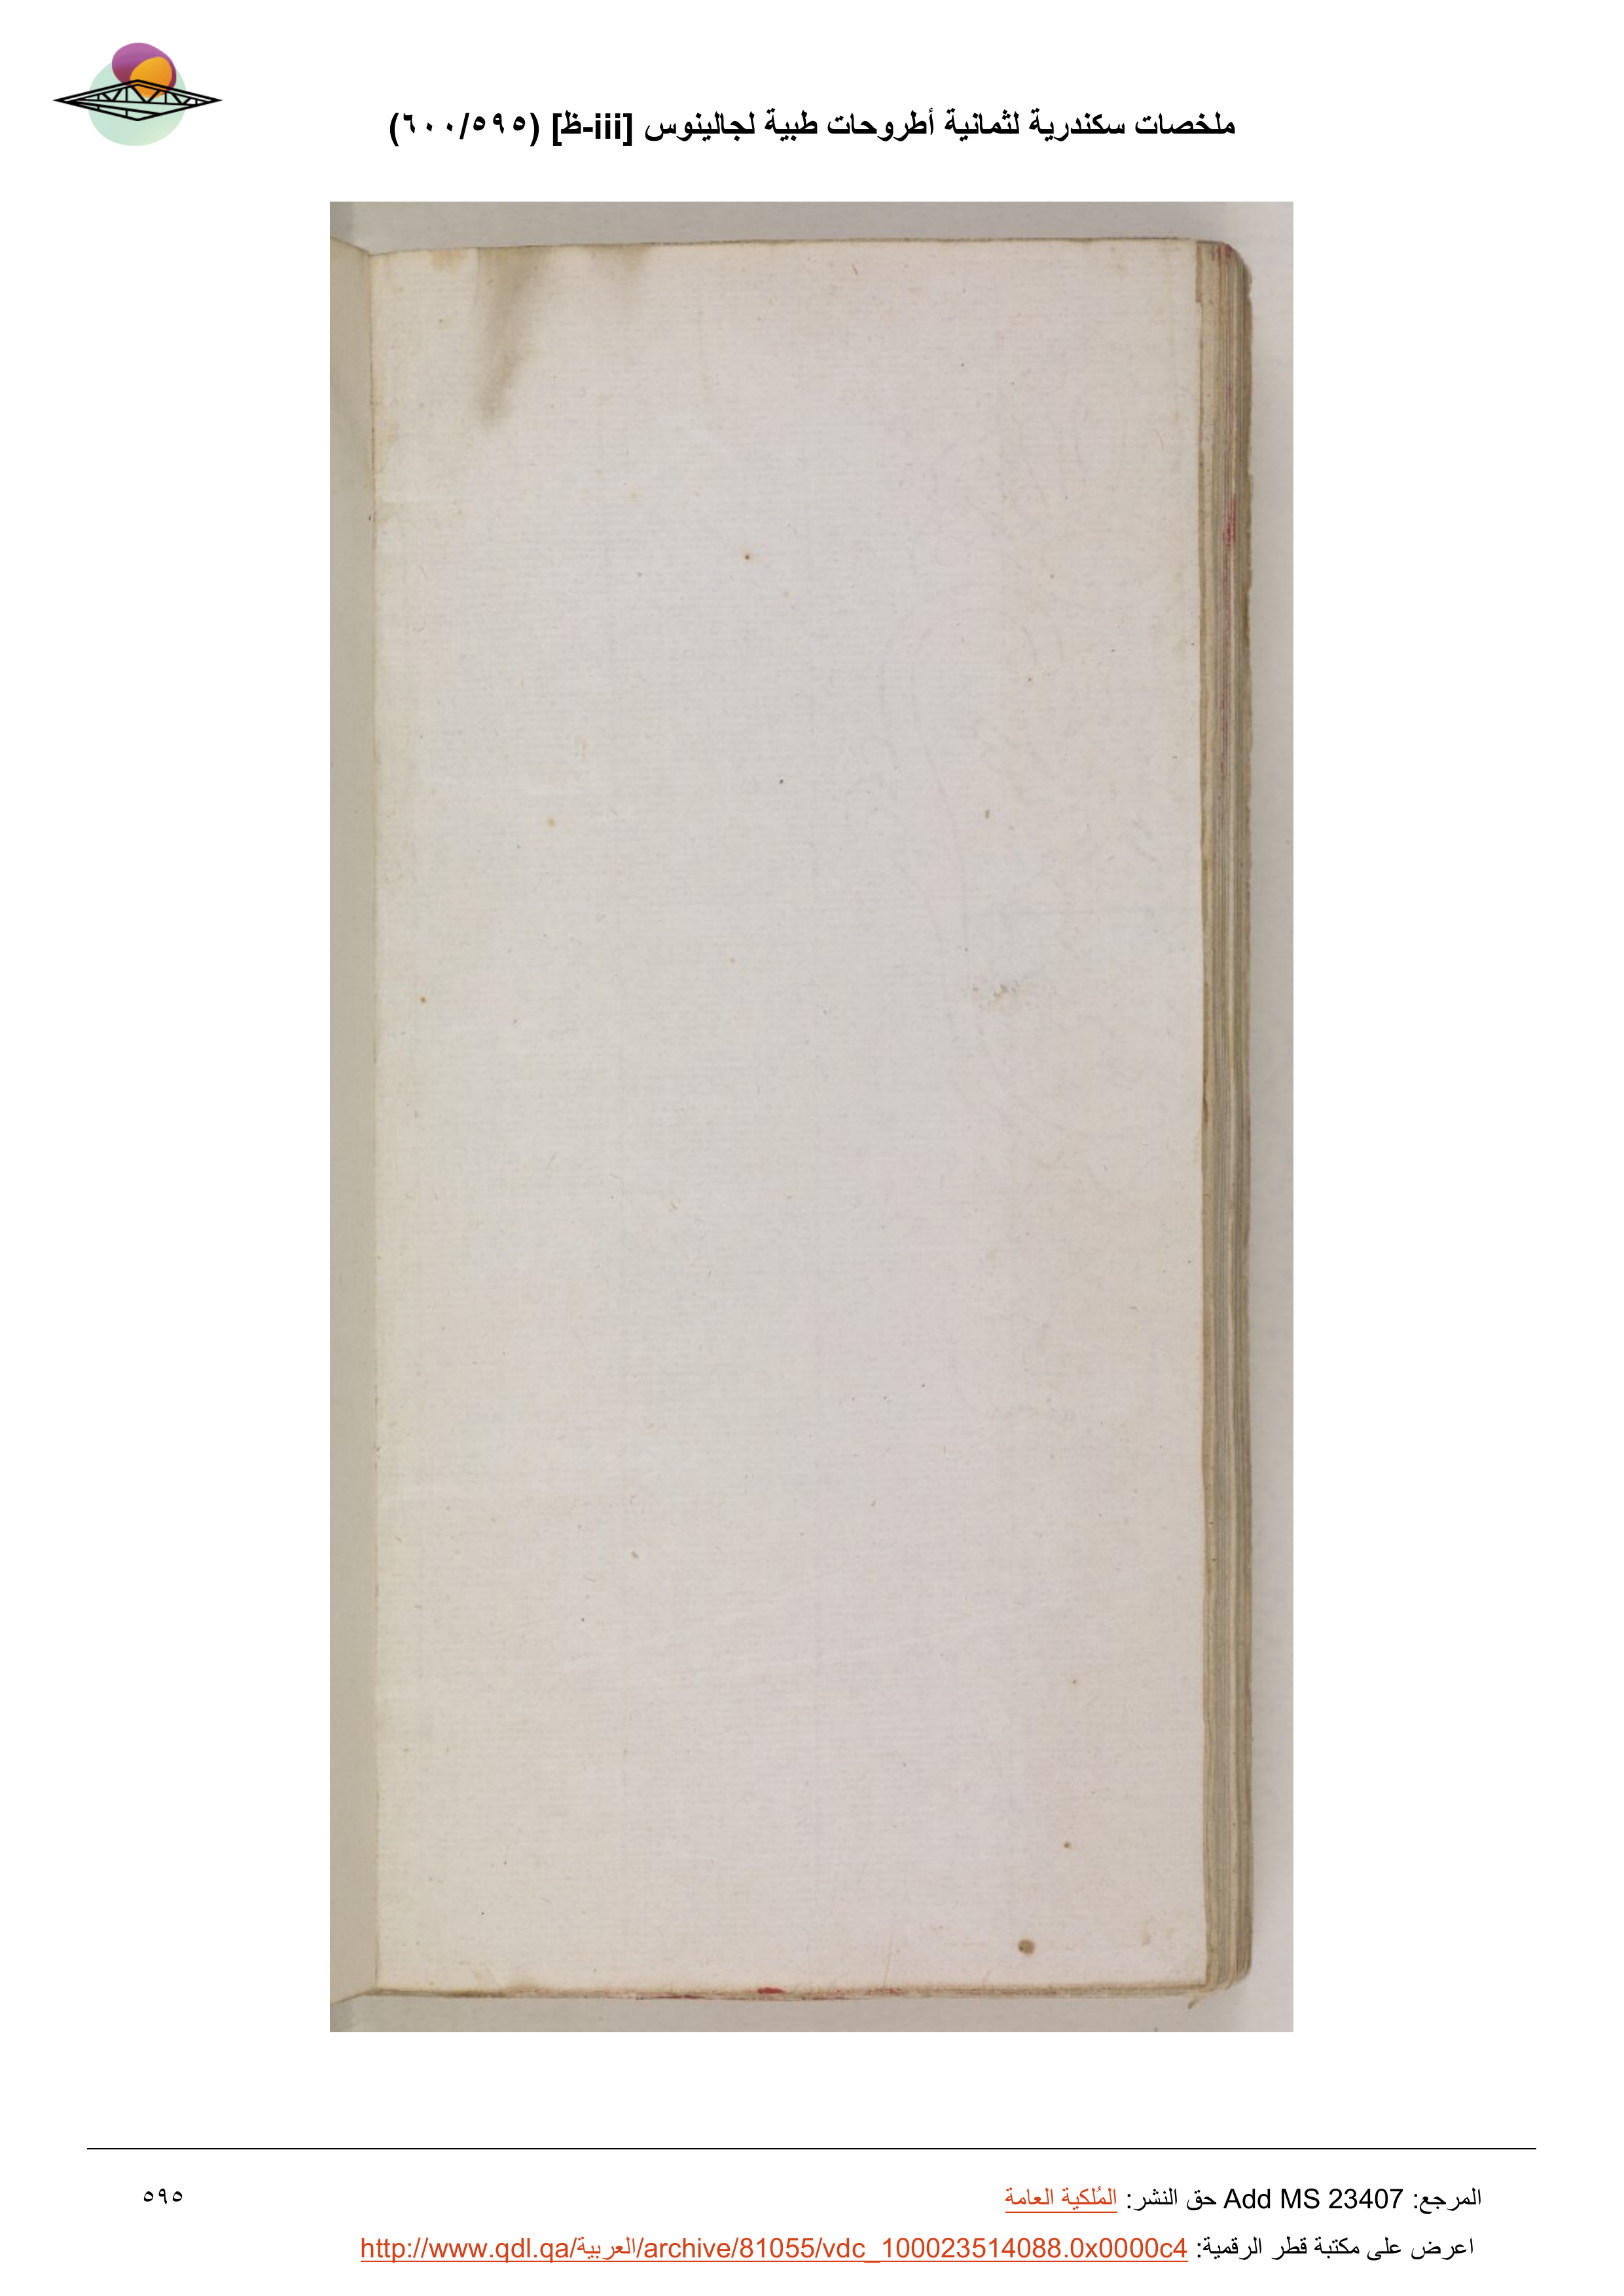 ملخصات سكندرية لثمانية أطروحات طبية لجالينوس [iii-ظ] (٥٩٥/٦٠٠)
المرجع: Add MS 23407 حق النشر: المُلكية العامة
٥٩٥
اعرض على مكتبة قطر الرقمية: http://www.qdl.qa/العربية/archive/81055/vdc_100023514088.0x0000c4